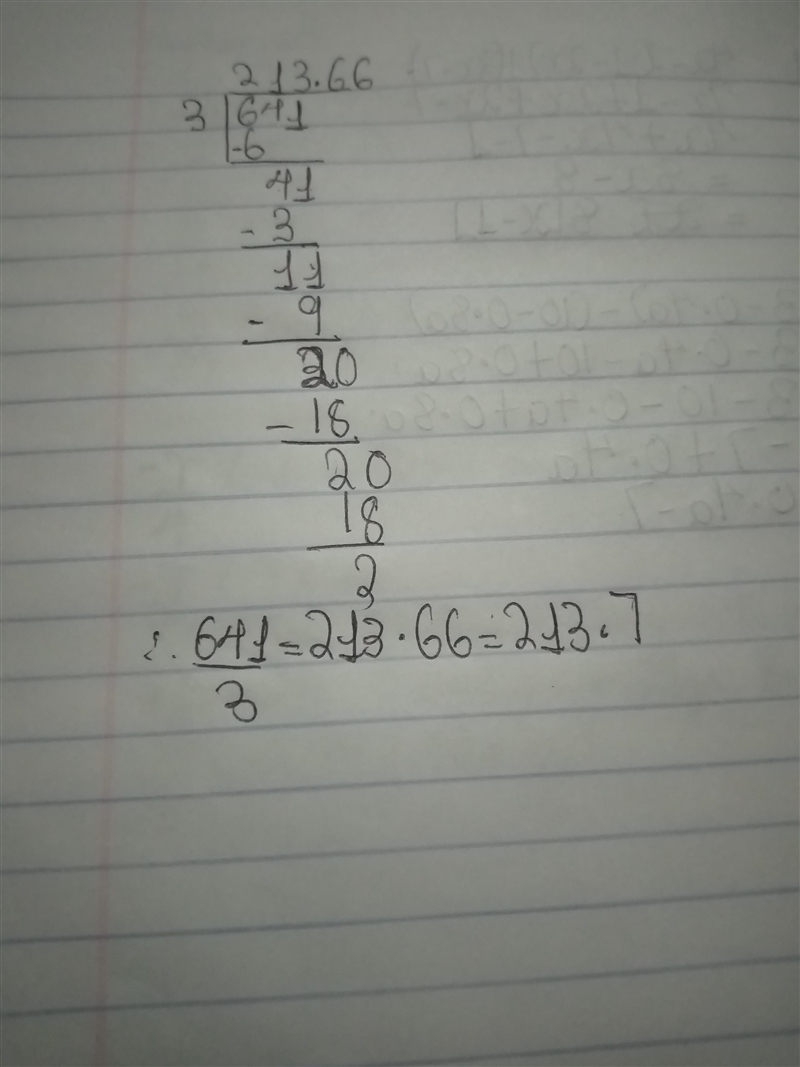 213.66
3 641
-6
41
- 3
11
- 9
20
- 18
20
18
2
∴ 641 = 213.66 = 213.7
3